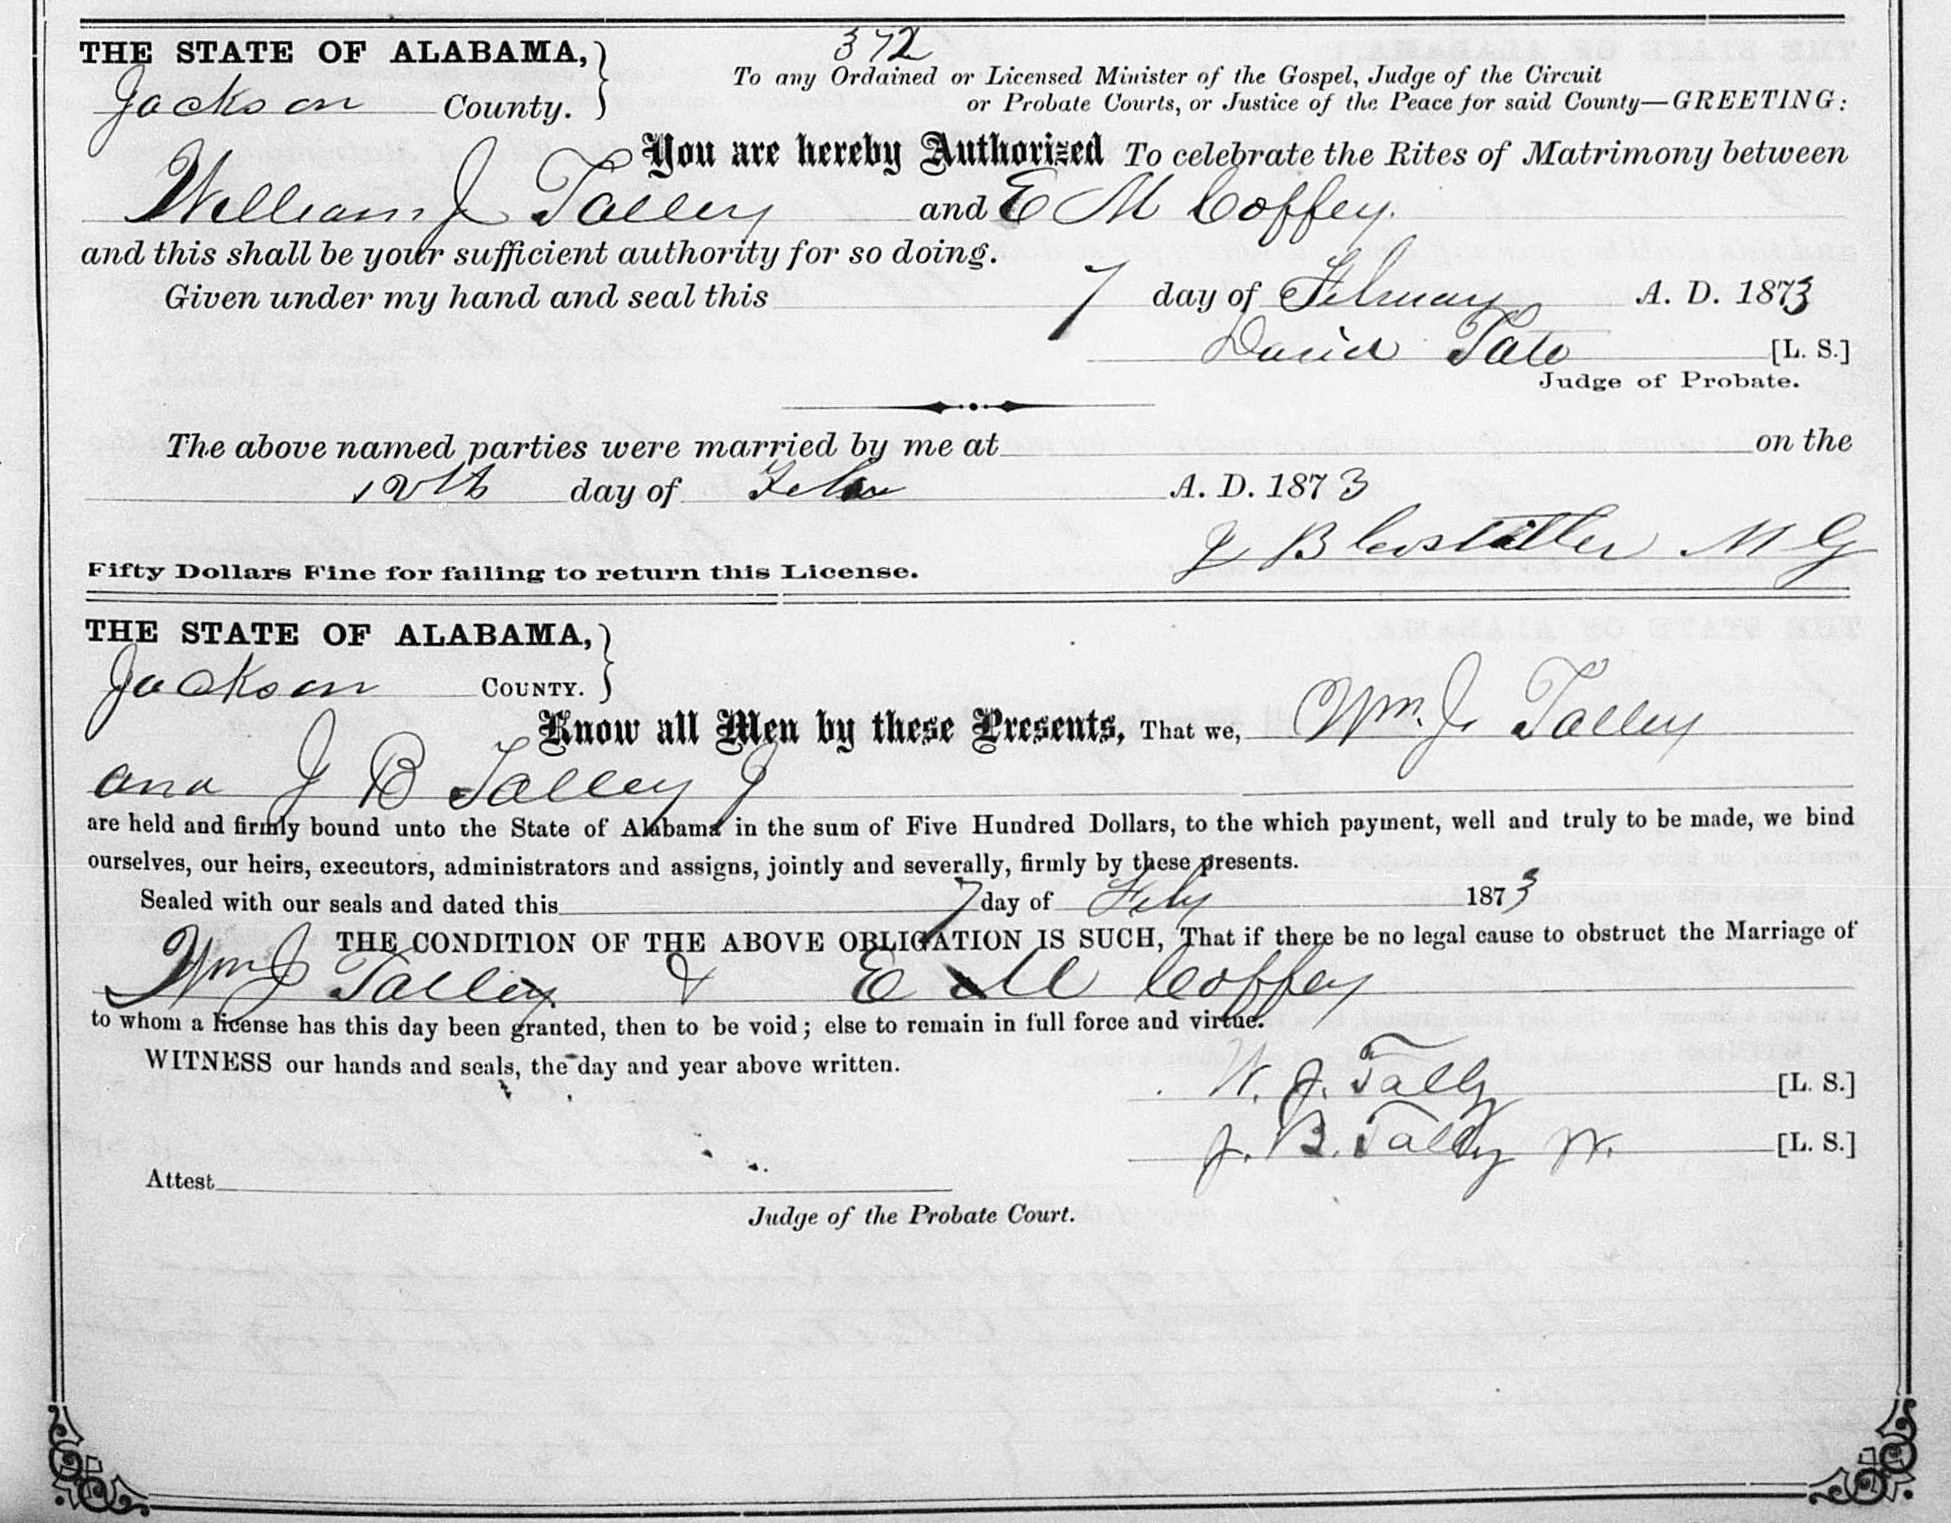 372
THE STATE OF ALABAMA,
Jackson County.
To any Ordained or Licensed Minister of the Gospel, Judge of the Circuit
or Probate Courts, or Justice of the Peace for said County—GREETING:
You are hereby Authorized To celebrate the Rites of Matrimony between
William J Talley and E M Coffey.
and this shall be your sufficient authority for so doing.
Given under my hand and seal this 7 day of February A. D. 1873
David Tate [L. S.]
Judge of Probate.
The above named parties were married by me at on the
12th day of A. D. 1873
J B M G
Fifty Dollars Fine for failing to return this License.
THE STATE OF ALABAMA,
Jackson COUNTY.
Know all Men by these Presents, That we, Wm. J. Talley
and J B Talley J
are held and firmly bound unto the State of Alabama in the sum of Five Hundred Dollars, to the which payment, well and truly to be made, we bind
ourselves, our heirs, executors, administrators and assigns, jointly and severally, firmly by these presents.
Sealed with our seals and dated this 7 day of Feby 1873
THE CONDITION OF THE ABOVE OBLIGATION IS SUCH, That if there be no legal cause to obstruct the Marriage of
Wm J Talley & E M Coffey
to whom a license has this day been granted, then to be void; else to remain in full force and virtue.
WITNESS our hands and seals, the day and year above written.
W. J. Tally [L. S.]
J. B. Tally [L. S.]
Attest
Judge of the Probate Court.